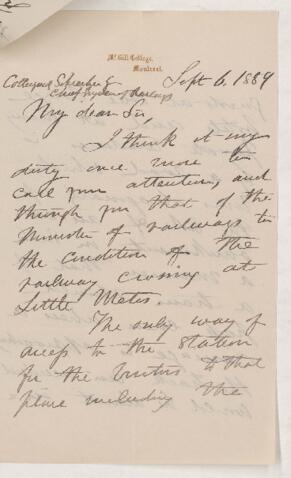 McGill College,
Montreal.
Collingwood Schreiber Esq
Chief Engineer of Railways
Sept 6. 1889
My dear Sir,
I think it my
duty once more to
call your attention, and
through you that of the
Minister of railways to
the condition of the
railway crossing at
Little Metis.
The only way of
access to the station
for the visitors to that
place including the